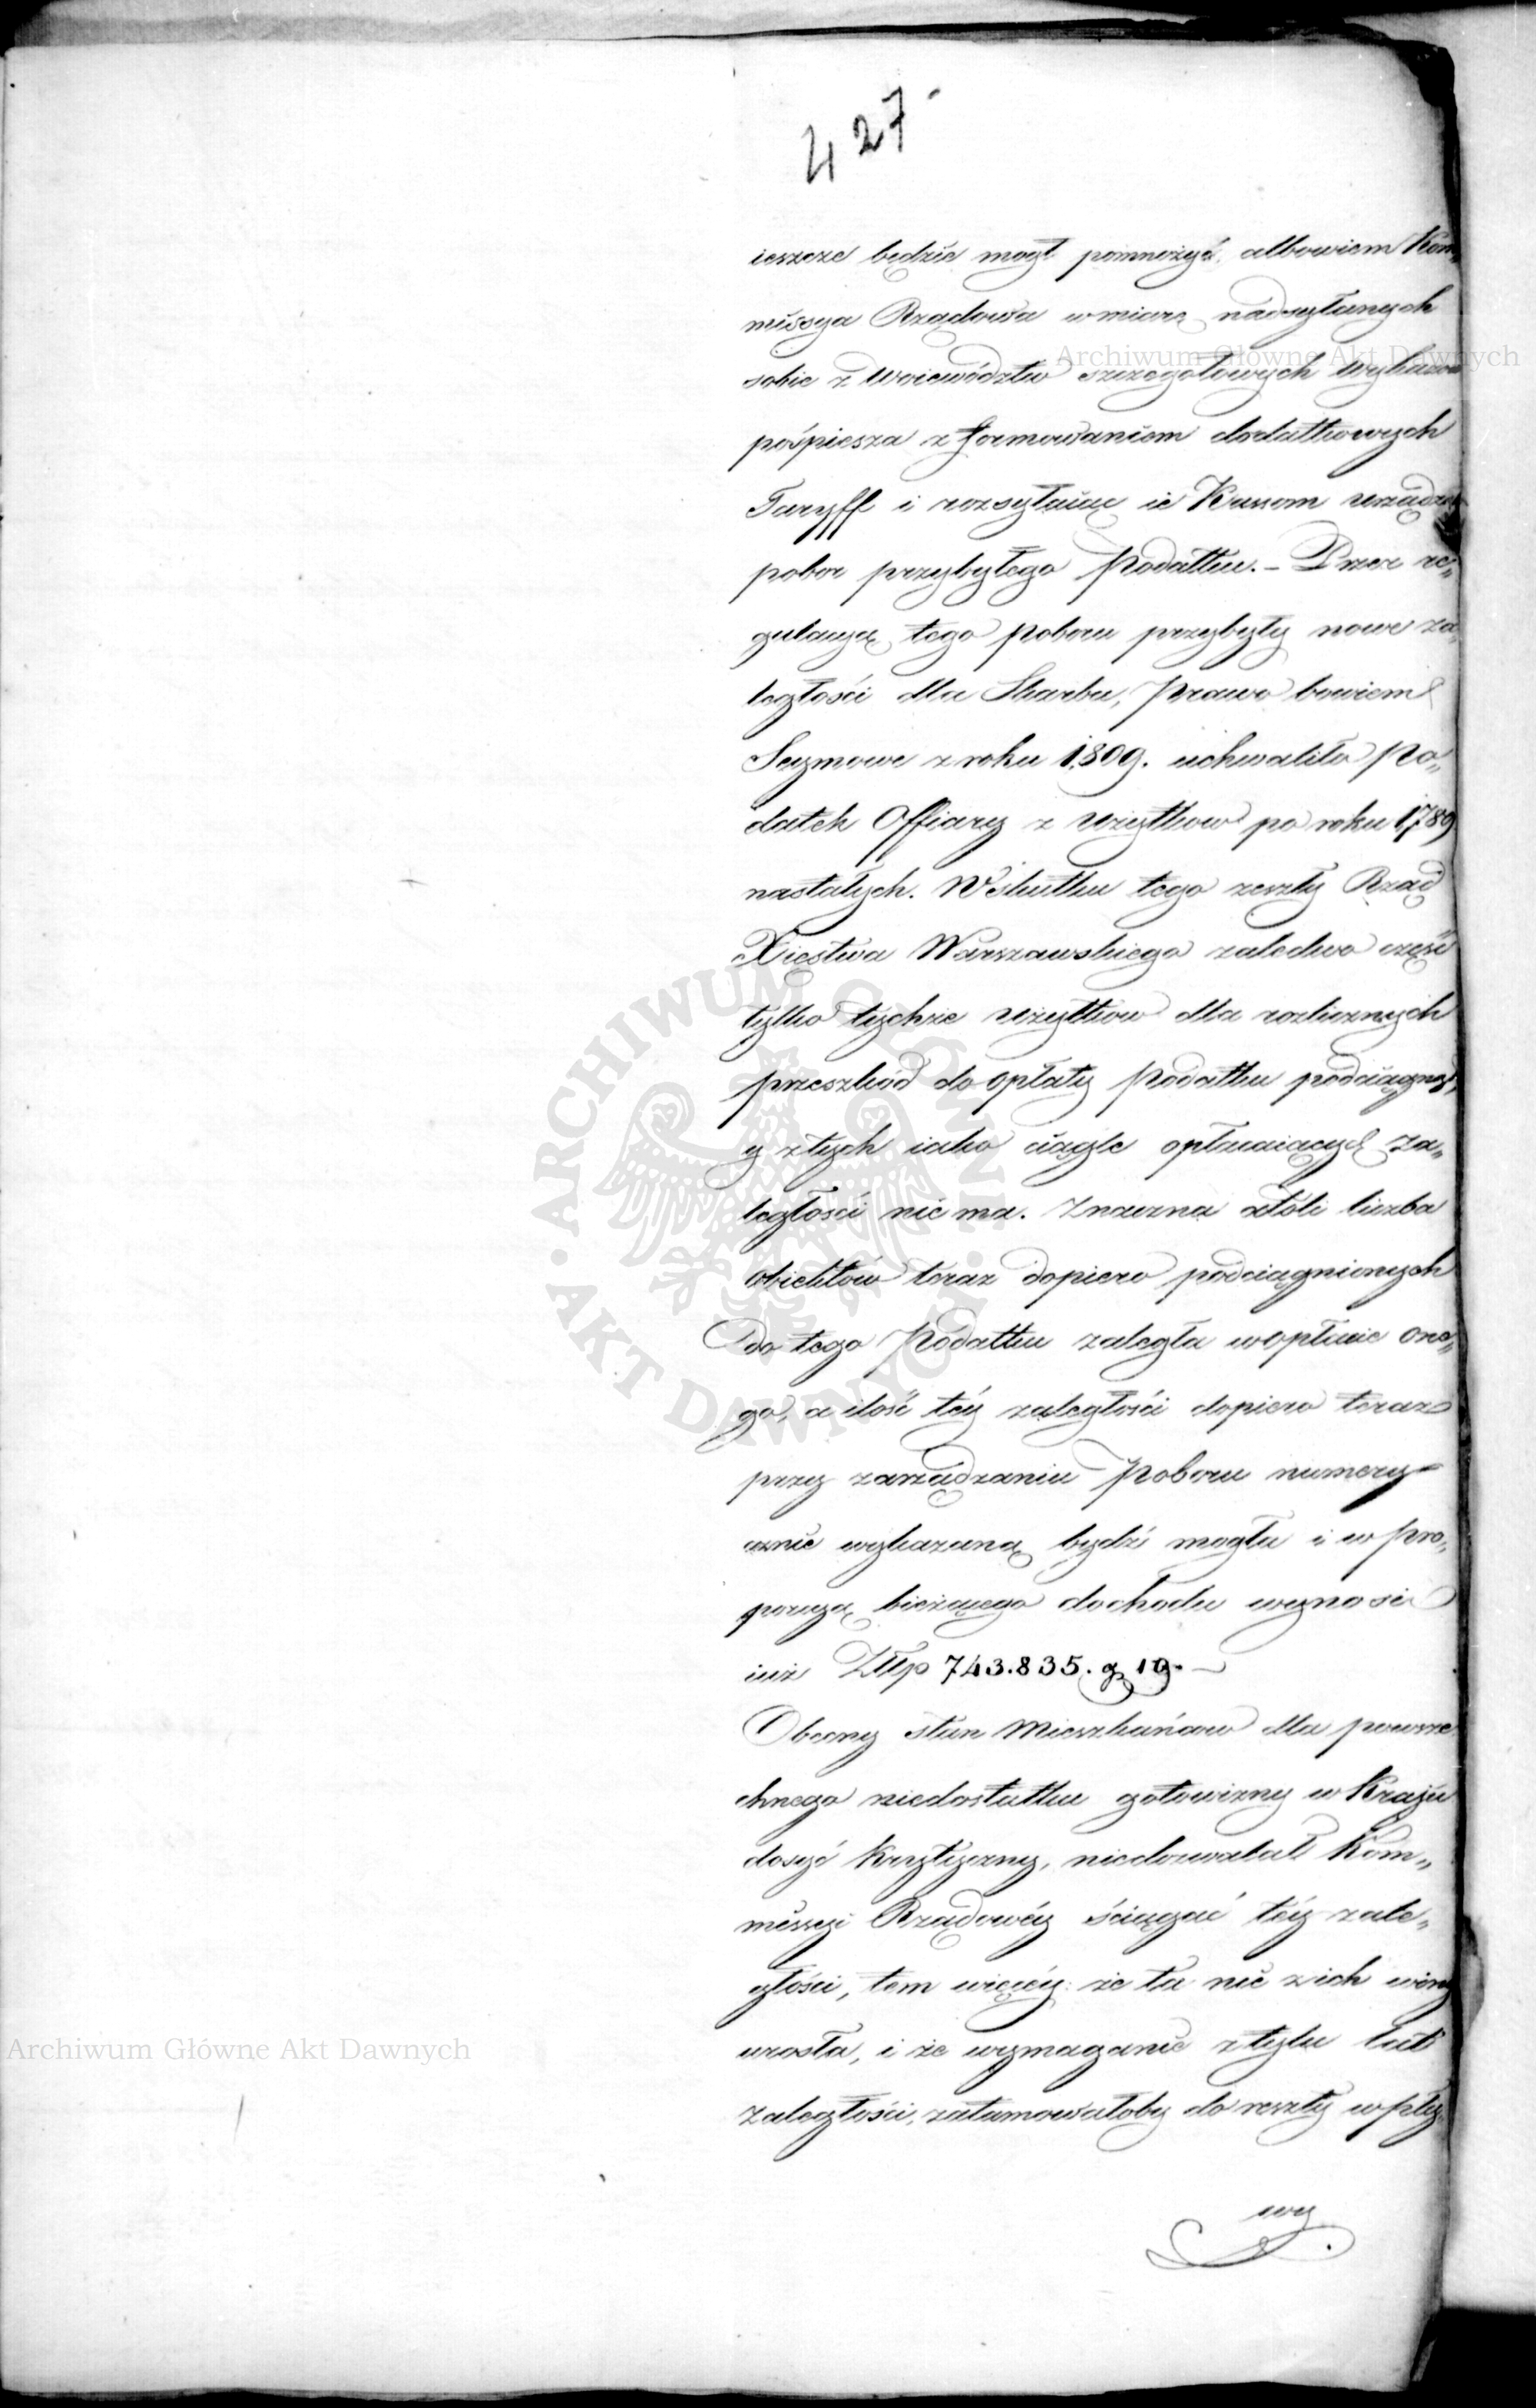 427
ieszcze będzie mogł pomnożyć, albowiem Kom„
missya Rządowa w miarę nadsyłanych
Archiwum Główne Akt Dawnych
sobie z Woiewództw szczegołowych wykazow
pośpiesza z formowaniem dodatkowych
Taryff i rozsyłaiąc ie Kassom urządza
pobor przybyłego Podatku. – Przez re„
gulacyą tego Poboru przybyły nowe za„
ległości dla Skarbu, Prawo bowiem
Seymowe z roku 1809. uchwaliło Po„
datek Offiary z użytkow po roku 1789
nastałych. W skutku tego zeszły Rząd
Xięstwa Warszawskiego zaledwo część
tylko tychże użytkow dla rozlicznych
przeszkód do opłaty Podatku podciągnął,
y z tych iako ciągle opłacaiących za„
ległości nie ma. Znaczna atóli liczba
obiektów teraz dopiero podciągnionych
do tego Podatku zaległa w opłacie one„
go, a ilość téy zaległości dopiero teraz
przy zarządzaniu Poboru numery=
cznie wykazaną bydź mogła i w pro„
porcyą bieżącego dochodu wynosi
iuż Złłp 743.835. g 19. –
Obecny stan Mieszkańcow dla powsze
chnego niedostatku gotowizny w Kraju
dosyć krytyczny, niedozwalał Kom„
missyi Rządowéy ściągać téy zale„
głości, tem więcéy że ta nie z ich winy
urosła, i że wymaganie z tylu lat
Archiwum Główne Akt Dawnych
zaległości, zatamowałoby do reszty wpły
wy
ARCHIWUM GŁÓWNE · AKT DAWNYCH ·